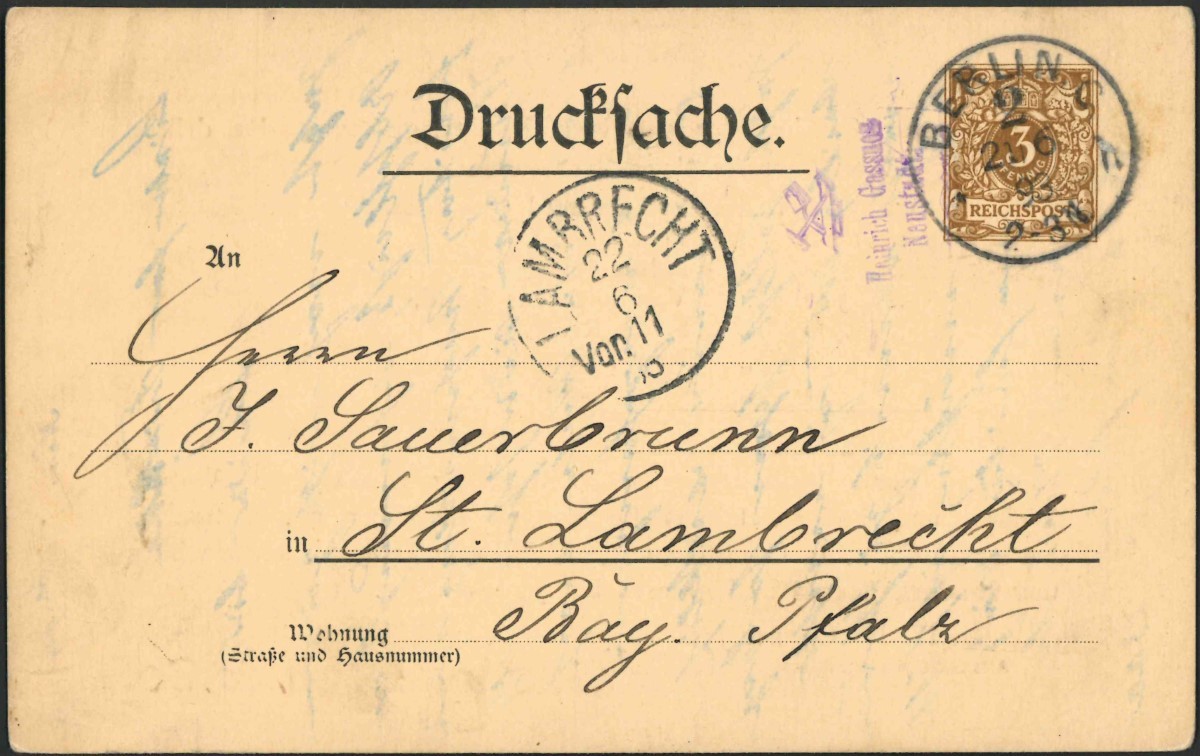 Drucksache.
BERLIN C
3
PFENNIG
REICHSPOST
21 6
93
2-3N
Heinrich
Neustadt
LAMBRECHT
22
6
Vor. 11
93
An
Herrn
J. Sauerbrunn
in St. Lambrecht
Wohnung Bay. Pfalz
(Straße und Hausnummer)